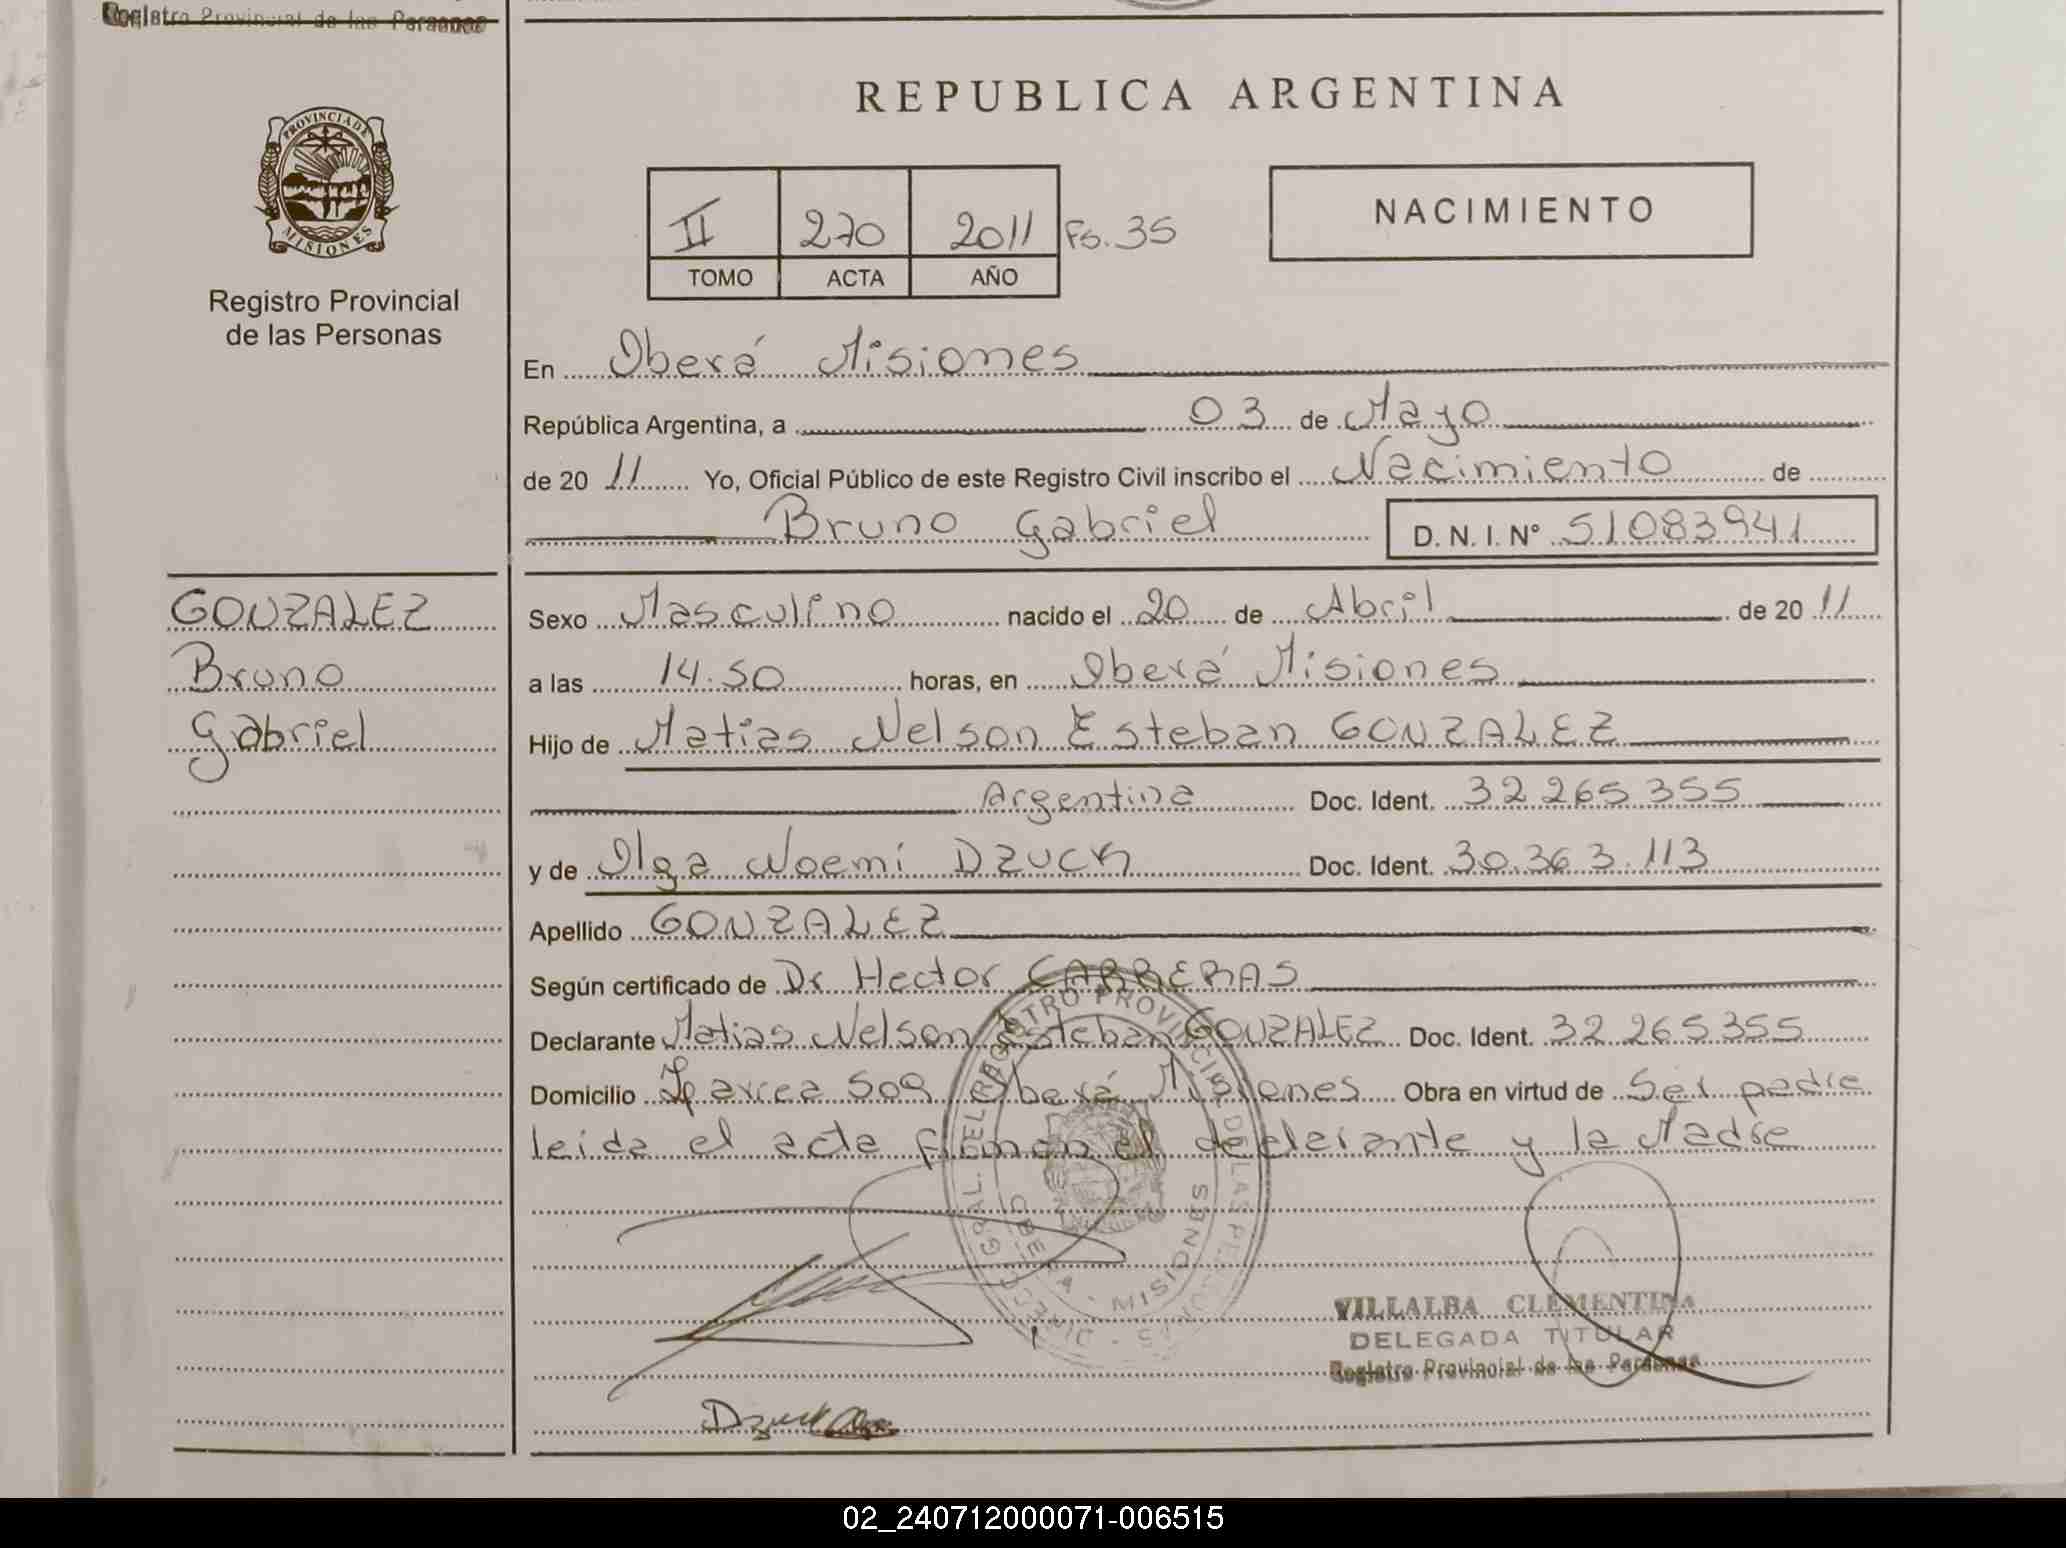 Registro Provincial de las Personas
PROVINCIA DE
MISIONES
Registro Provincial
de las Personas
REPUBLICA ARGENTINA
II 270 2011 Fs. 35
TOMO ACTA AÑO
NACIMIENTO
En Oberá Misiones
República Argentina, a 03 de Mayo
de 20 11 Yo, Oficial Público de este Registro Civil inscribo el Nacimiento de
Bruno Gabriel D. N. I. Nº 51083941
GONZALEZ
Bruno
Gabriel
Sexo Masculino nacido el 20 de Abril de 20 11
a las 14.50 horas, en Oberá Misiones
Hijo de Matias Nelson Esteban GONZALEZ
Argentina Doc. Ident. 32 265 355
y de Olga Noemi DZUCK Doc. Ident. 30.363.113
Apellido GONZALEZ
Según certificado de Dr Hector CARRERAS
Declarante Matias Nelson Esteban GONZALEZ Doc. Ident. 32 265355
Domicilio 509 Oberá Misiones Obra en virtud de Ser padre
leida el acta firman el declarante y la Madre
DIRECC. GRAL. DEL REGISTRO PROVINCIAL DE LAS PERSONAS
OBERA - MISIONES
VILLALBA CLEMENTINA
DELEGADA TITULAR
Registro Provincial de las Personas
02_240712000071-006515